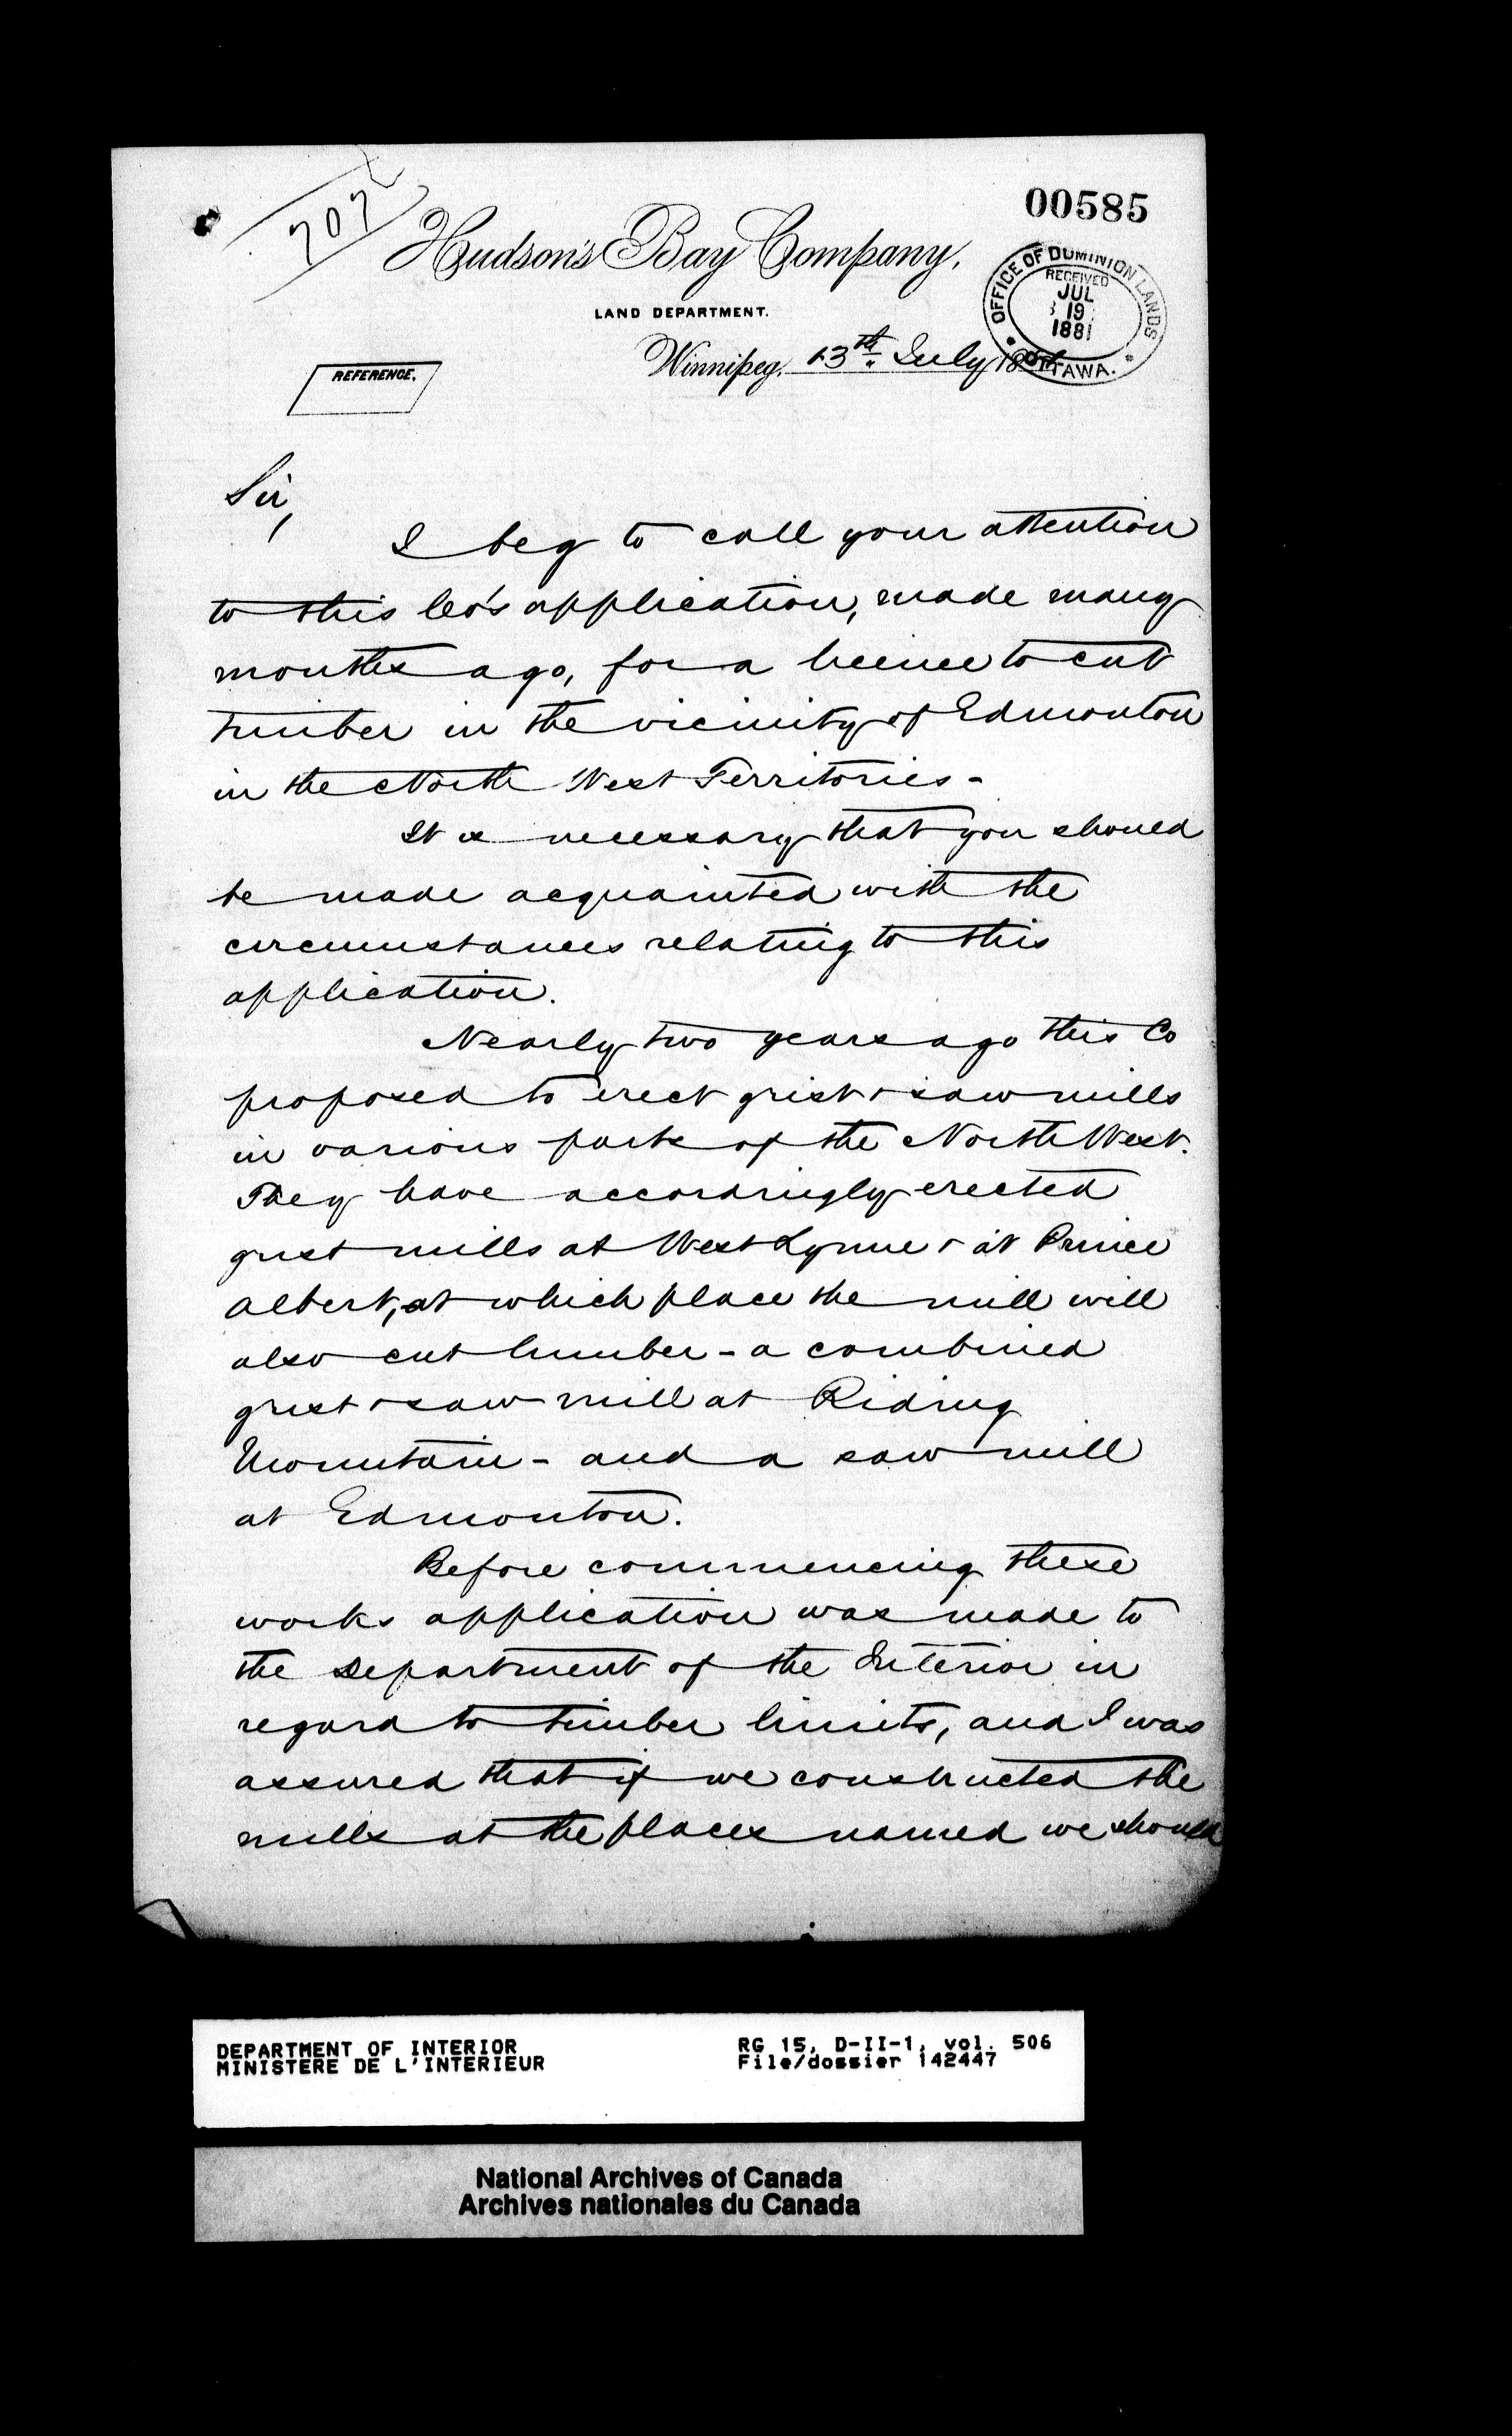 707
00585
Hudson's Bay Company,
LAND DEPARTMENT.
OFFICE OF DOMINION LANDS
RECEIVED
JUL
19
1881
OTTAWA.
Winnipeg, 13th July 18
REFERENCE.
Sir,
I beg to call your attention
to this Co's application, made many
months ago, for a licence to cut
timber in the vicinity of Edmonton
in the North West Territories -
It is necessary that you should
be made acquainted with the
circumstances relating to this
application.
Nearly two years ago this Co
proposed to erect grist & saw mills
in various parts of the North West.
They have accordingly erected
grist mills at West Lynne & at Prince
Albert, at which place the mill will
also cut lumber - a combined
grist & saw mill at Riding
Mountain - and a saw mill
at Edmonton.
Before commencing these
works application was made to
the Department of the Interior in
regard to timber limits, and I was
assured that if we constructed the
mills at the places named we should
DEPARTMENT OF INTERIOR
MINISTERE DE L'INTERIEUR
RG 15, D-II-1, vol. 506
File/dossier 142447
National Archives of Canada
Archives nationales du Canada